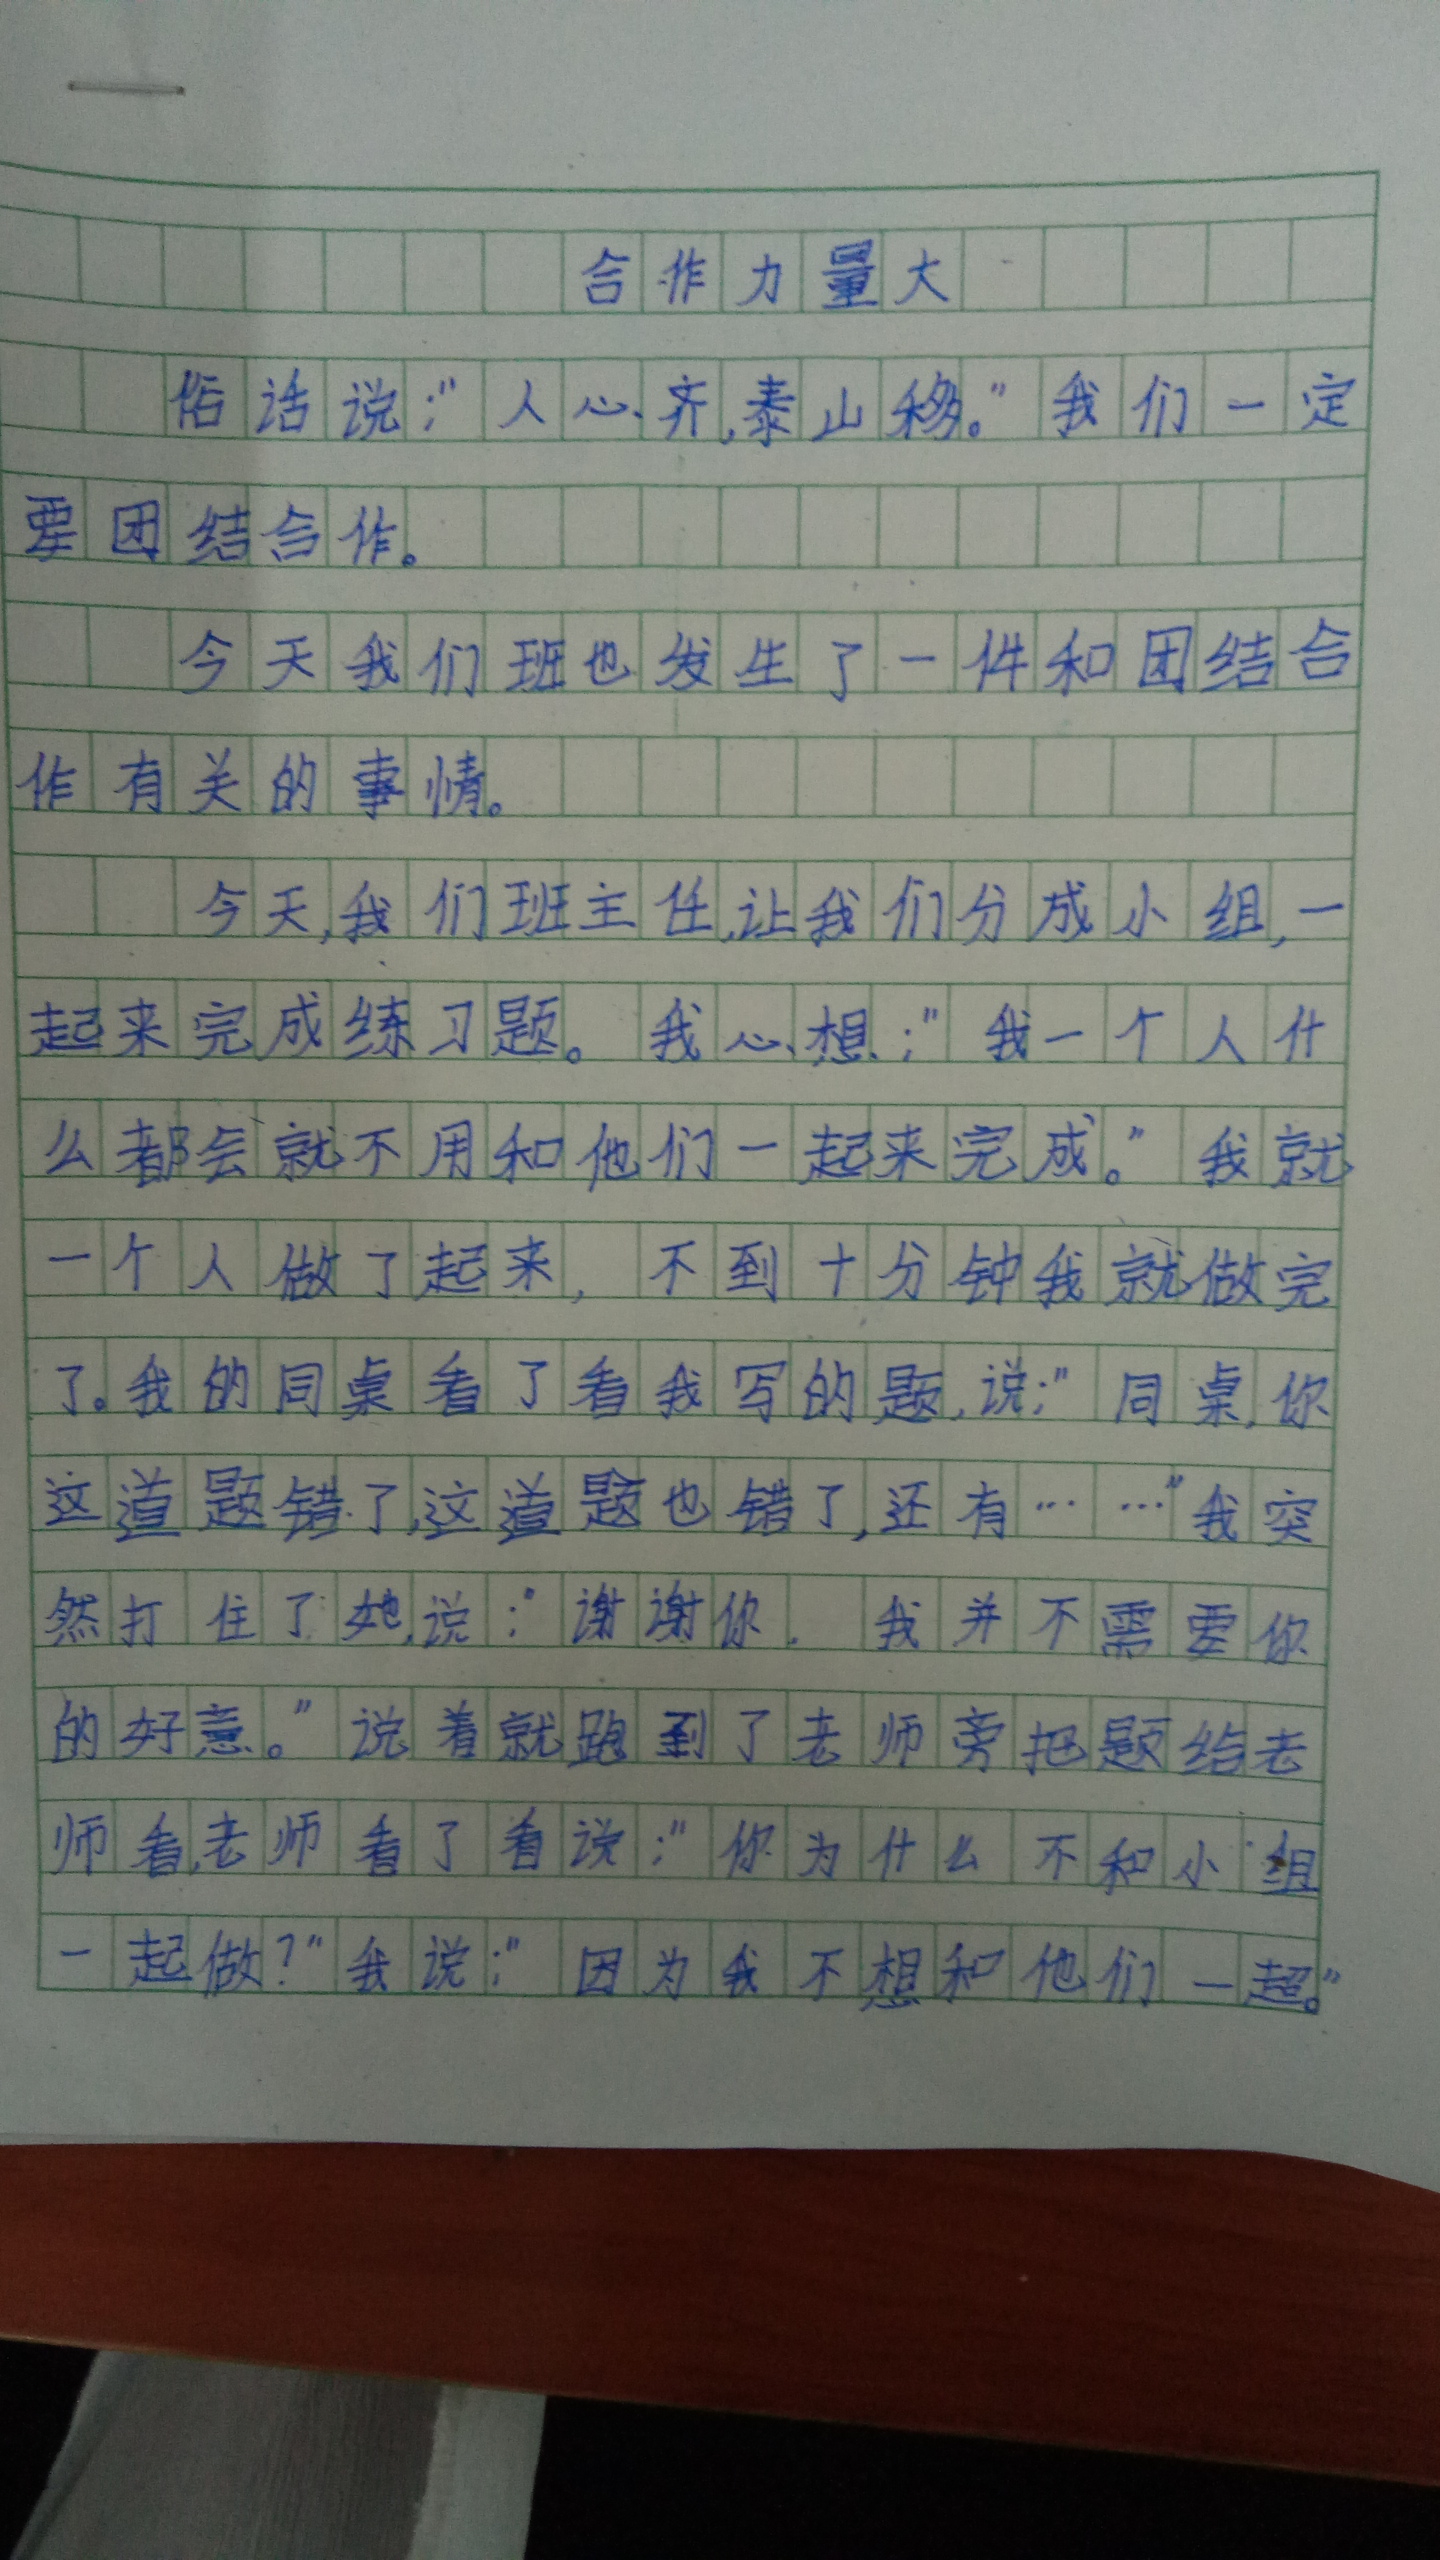 合作力量大
俗话说:"人心齐,泰山移。"我们一定
要团结合作。
今天我们班也发生了一件和团结合
作有关的事情。
今天,我们班主任,让我们分成小组,一
起来完成练习题。我心想:"我一个人什
么都会就不用和他们一起来完成。"我就
一个人做了起来,不到十分钟我就做完
了。我的同桌看了看我写的题,说:"同桌,你
这道题错了,这道题也错了,还有……"我突
然打住了她,说:"谢谢你.我并不需要你
的好意。"说着就跑到了老师旁把题给老
师看,老师看了看说:"你为什么不和小组
一起做?"我说:"因为我不想和他们一起。"